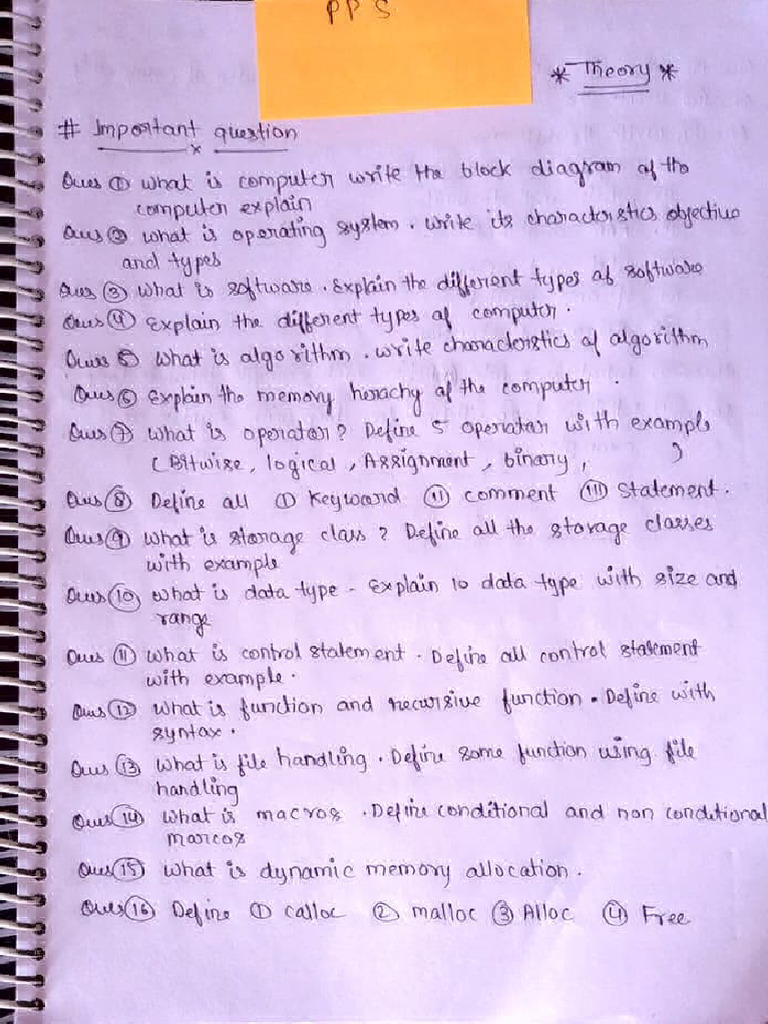 PPS
* Theory *
# Important question
Ques ① What is computer write the block diagram of the
computer explain
Ques ② What is operating system. write its characteristics objective
and types
Ques ③ What is software. Explain the different types of software
Ques ④ Explain the different types of computer.
Ques 5 What is algorithm. write characteristics of algorithm
Ques ⑥ Explain the memory hierachy of the computer.
Ques ⑦ What is operator? Define 5 operator with example
(Bitwise, logical, Assignment, binary, )
Ques ⑧ Define all ① Keyword ⑪ comment ⑪⑪ Statement.
Ques ⑨ What is storage class? Define all the storage classes
with example
Ques ⑩ What is data type - Explain 10 data type with size and
range
Ques ⑪ What is control statement. Define all control statement
with example.
Ques ⑫ What is function and recursive function. Define with
syntax.
Ques ⑬ What is file handling. Define some function using file
handling
Ques ⑭ What is macros. Define conditional and non conditional
marcos
Ques ⑮ What is dynamic memory allocation.
Ques ⑯ Define ① calloc ② malloc ③ Alloc ④ Free